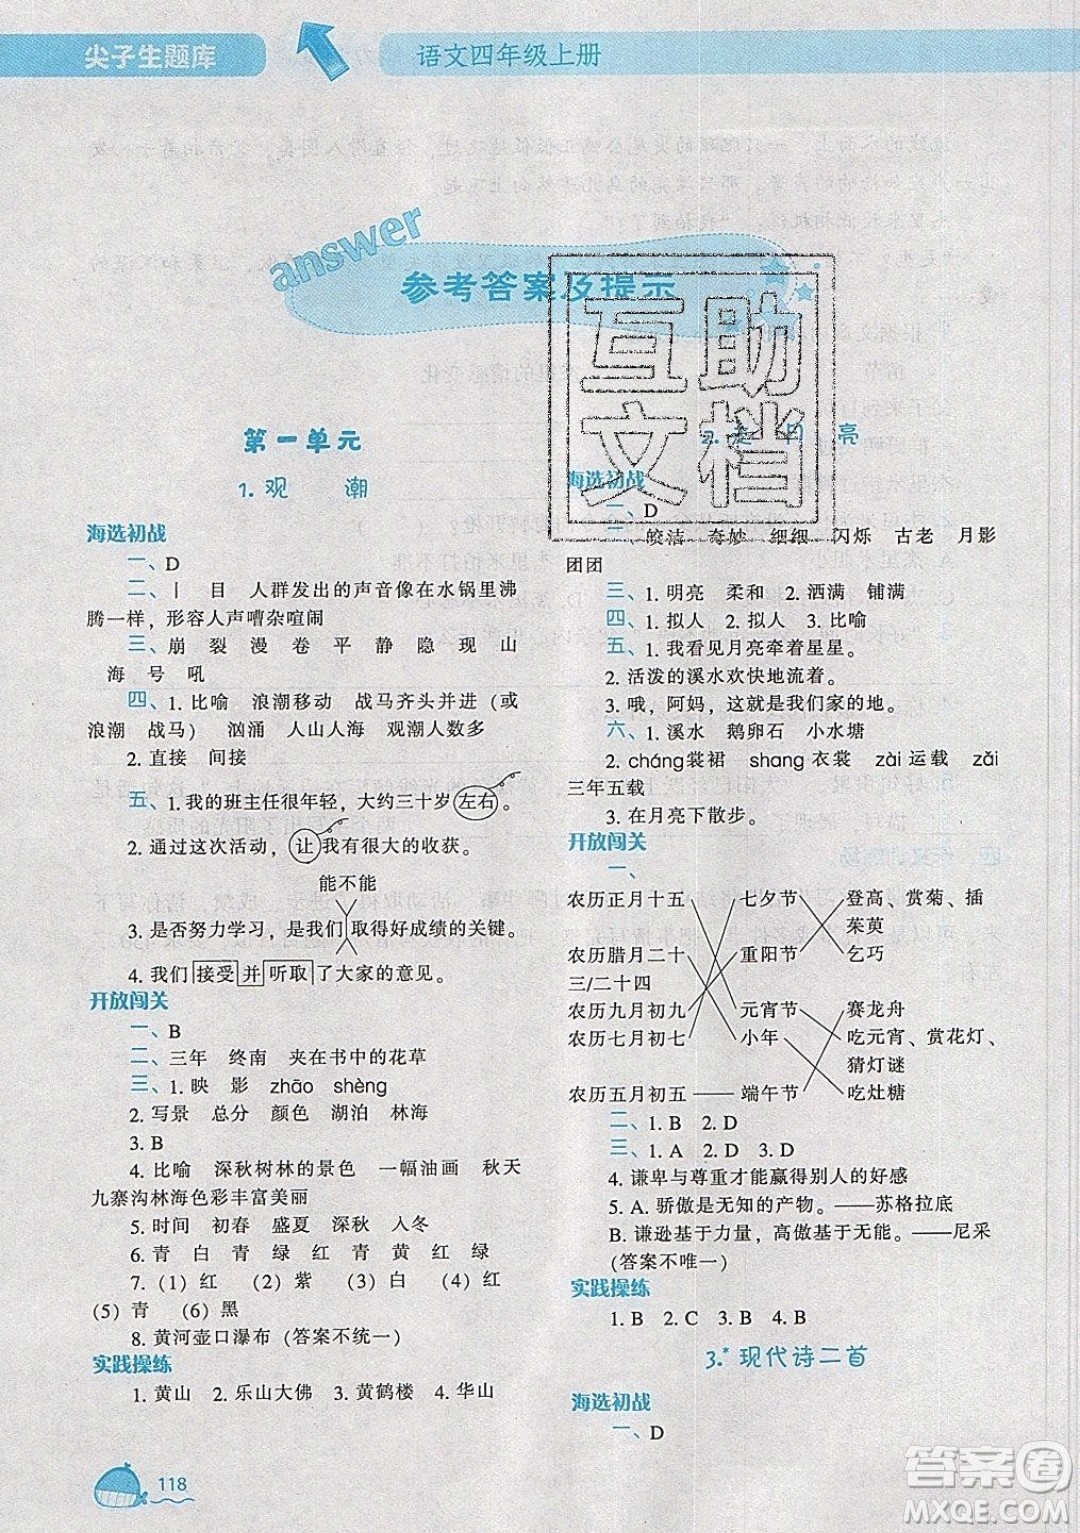 尖子生题库
语文四年级上册
answer
参考答案及提示
第一单元
1. 观 潮
海选初战
一、D
二、丨 目 人群发出的声音像在水锅里沸
腾一样，形容人声嘈杂喧闹
三、崩 裂 漫 卷 平 静 隐 现 山
海 号 吼
四、1. 比喻 浪潮移动 战马齐头并进 (或
浪潮 战马) 汹涌 人山人海 观潮人数多
2. 直接 间接
五、1. 我的班主任很年轻，大约三十岁左右。
2. 通过这次活动，让我有很大的收获。
能不能
3. 是否努力学习，是我们取得好成绩的关键。
4. 我们接受并听取了大家的意见。
开放闯关
一、B
二、三年 终南 夹在书中的花草
三、1. 映 影 zhāo shèng
2. 写景 总分 颜色 湖泊 林海
3. B
4. 比喻 深秋树林的景色 一幅油画 秋天
九寨沟林海色彩丰富美丽
5. 时间 初春 盛夏 深秋 入冬
6. 青 白 青 绿 红 青 黄 红 绿
7. (1) 红 (2) 紫 (3) 白 (4) 红
(5) 青 (6) 黑
8. 黄河壶口瀑布 (答案不统一)
实践操练
1. 黄山 2. 乐山大佛 3. 黄鹤楼 4. 华山
118
互助
文档
2. 走 月 亮
海选初战
一、D
二、皎洁 奇妙 细细 闪烁 古老 月影
团团
三、1. 明亮 柔和 2. 洒满 铺满
四、1. 拟人 2. 拟人 3. 比喻
五、1. 我看见月亮牵着星星。
2. 活泼的溪水欢快地流着。
3. 哦，阿妈，这就是我们家的地。
六、1. 溪水 鹅卵石 小水塘
2. cháng裳裙 shang衣裳 zài运载 zǎi
三年五载
3. 在月亮下散步。
开放闯关
一、
农历正月十五 七夕节 登高、赏菊、插
茱萸
农历腊月二十 重阳节 乞巧
三/二十四
农历九月初九 元宵节 赛龙舟
农历七月初七 小年 吃元宵、赏花灯、
猜灯谜
农历五月初五 端午节 吃灶糖
二、1. B 2. D
三、1. A 2. D 3. D
4. 谦卑与尊重才能赢得别人的好感
5. A. 骄傲是无知的产物。——苏格拉底
B. 谦逊基于力量，高傲基于无能。——尼采
(答案不唯一)
实践操练
1. B 2. C 3. B 4. B
3.* 现代诗二首
海选初战
一、D
答案圈
MXQE.COM